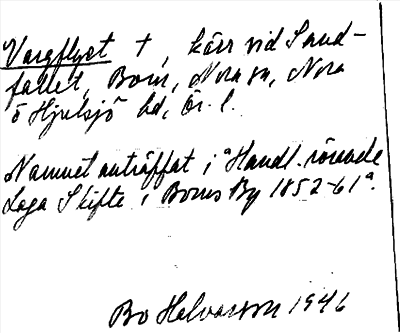 Vargflyet †, kärr vid Sand-
fallet, Born, Nora sn, Nora
o Hjulsjö hd, Ör. l.
Namnet anträffat i "Handl. rörande
Laga Skifte i Borns By 1852-61".
Bo Halvarson 1946